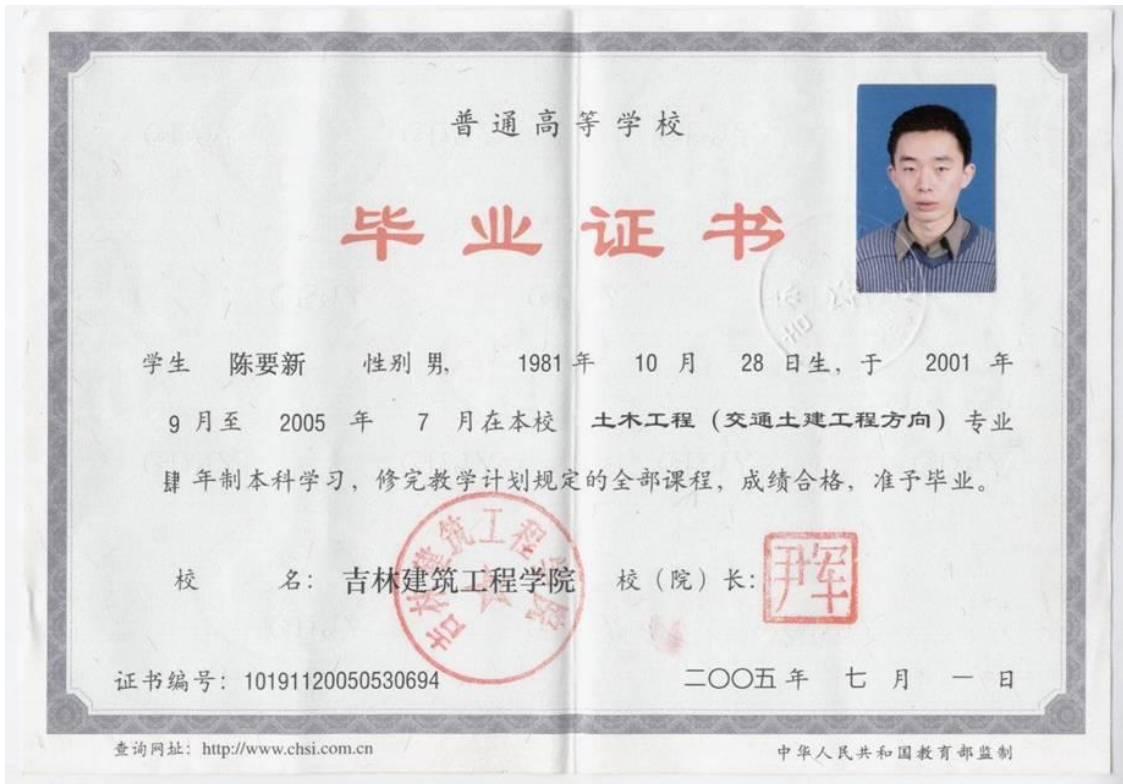 普通高等学校
毕业证书
学生 陈要新 性别 男, 1981 年 10 月 28 日生, 于 2001 年
9 月至 2005 年 7 月在本校 土木工程（交通土建工程方向）专业
肆 年制本科学习, 修完教学计划规定的全部课程, 成绩合格, 准予毕业。
校 名: 吉林建筑工程学院 校（院）长:
吉林建筑工程学院
证书编号: 10191120050530694 二〇〇五年 七 月 一 日
查询网址: http://www.chsi.com.cn 中华人民共和国教育部监制